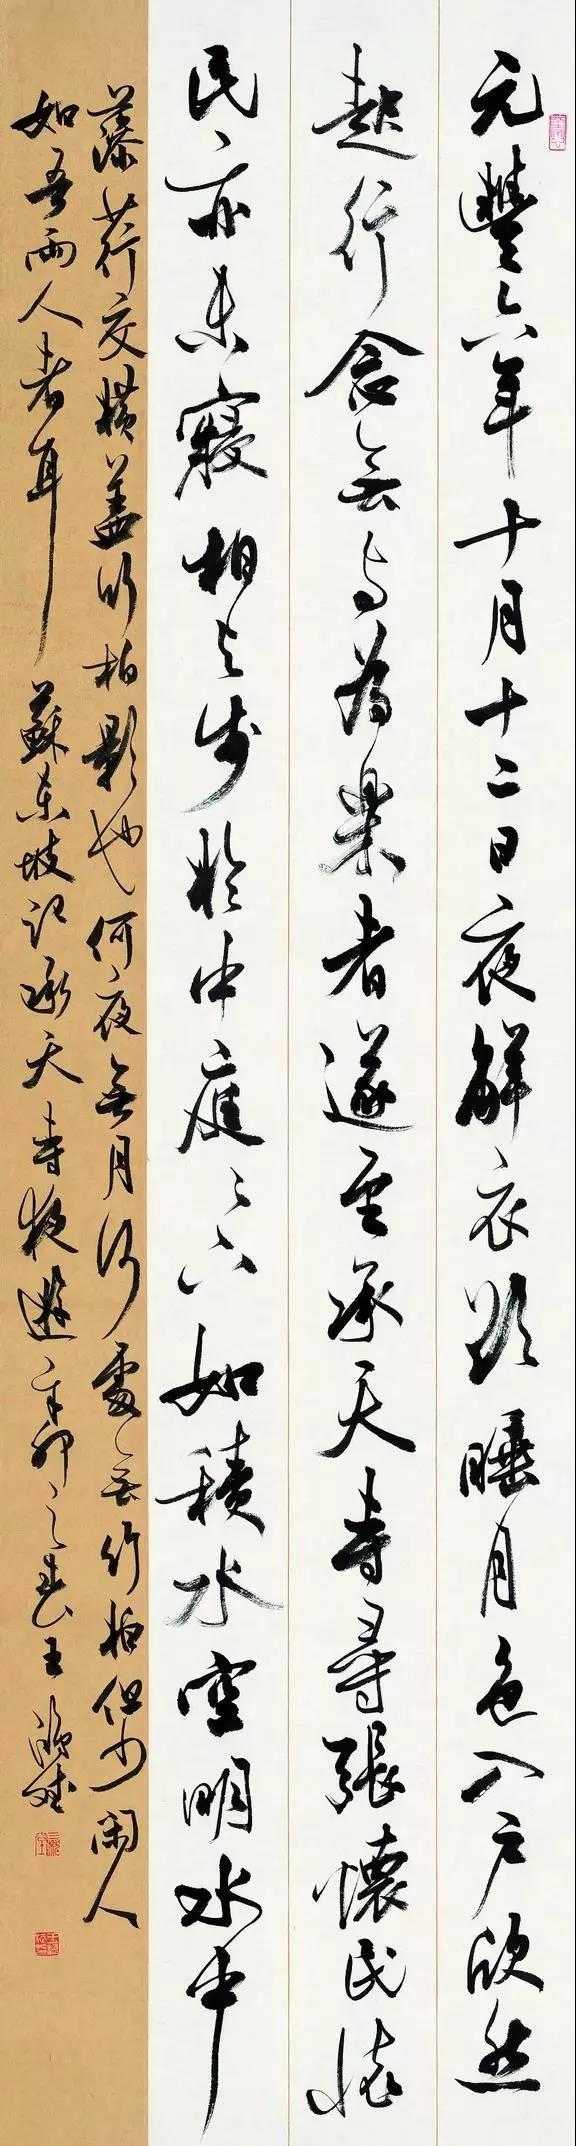 元豐六年十月十二日夜解衣欲睡月色入户欣然
起行念無与為樂者遂至承天寺尋張懷民懷
民亦未寢相与步於中庭〻下如積水空明水中
藻荇交横盖竹柏影也何夜無月何處無竹柏但少闲人
如吾兩人者耳 蘇東坡記承天寺夜遊 辛卯之春王